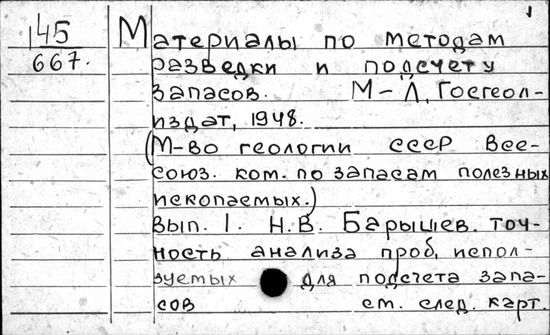 145
667.
Материалы по методам
разведки и подсчету
запасов. М-Л, Госгеол-
издат, 1948.
(М-во геологии СССР Все-
союз. ком. по запасам полезных
ископаемых.)
Вып. 1. Н.В. Барышев. Точ-
ность анализа проб, испол-
зуемых для подсчета запа-
сов см. след. карт.